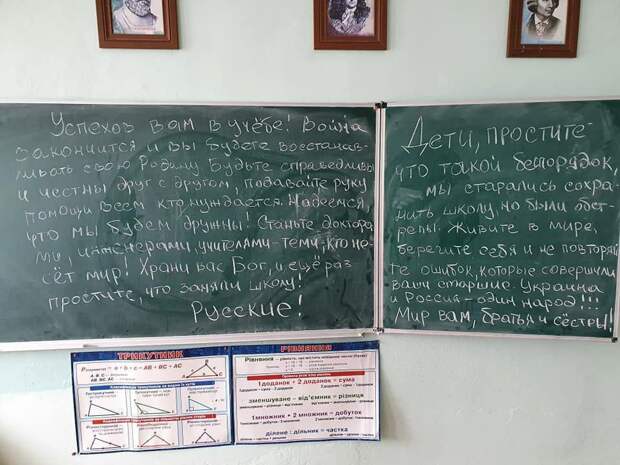 Успехов вам в учёбе! Война
закончится и вы будете восстанав-
ливать свою Родину Будьте справедливы
и честны друг с другом, подавайте руку
помощи всем кто нуждается. Надеемся,
что мы будем дружны! Станьте доктора-
ми, инженерами, учителями-теми, кто не-
сёт мир! Храни вас Бог, и ещё раз
простите, что заняли школу!
Русские!
Дети, простите
что такой беспорядок,
мы старались сохра-
нить школу, но были обст-
релы. Живите в мире,
берегите себя и не повторяй-
те ошибок, которые совершили
ваши старшие Украина
и Россия-один народ!!!
Мир вам, братья и сёстры!!
ТРИКУТНИК
= a + b + c = AB + BC + AC
РІВНЯННЯ
Рівняння
1доданок + 2 доданок = сума
зменшуване - від'ємник = різниця
1множник • 2 множник = добуток
ділене : дільник = частка